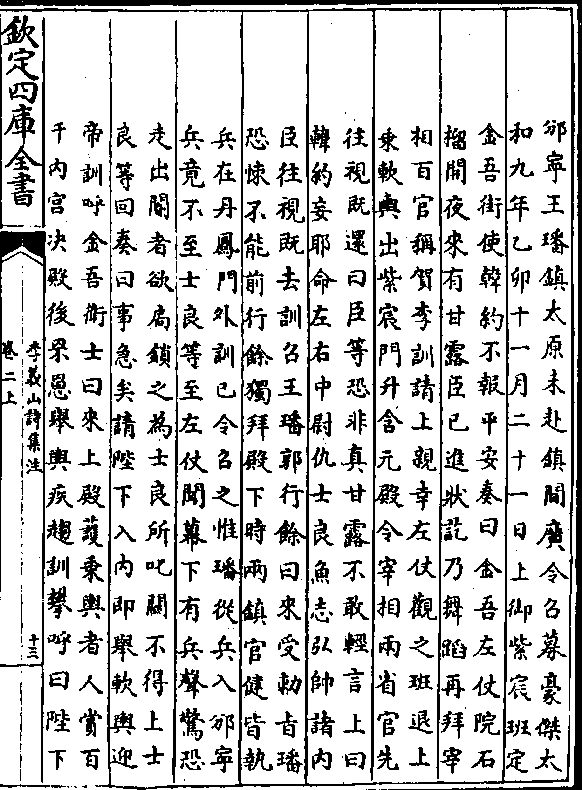 邠寧王璠鎮太原未赴鎮間廣令召募豪傑太
和九年乙卯十一月二十一日上御紫宸班定
金吾街使韓約不報平安奏曰金吾左仗院石
榴開夜來有甘露臣已進狀訖乃舞蹈再拜宰
相百官稱賀李訓請上親幸左仗觀之班退上
乗軟輿出紫宸門升含元殿令宰相兩省官先
往視既還曰臣等恐非真甘露不敢輕言上曰
韓約妄耶命左右中尉仇士良魚志弘帥諸内
臣往視既去訓召王璠郭行餘曰來受勅旨璠
恐悚不能前行餘獨拜殿下時兩鎮官健皆執
兵在丹鳳門外訓已令召之惟璠從兵入邠寧
兵竟不至士良等至左仗聞幕下有兵聲驚恐
走出閽者欲扃鎖之為士良所叱關不得上士
良等回奏曰事急矣請陛下入内即舉軟輿迎
帝訓呼金吾衛士曰來上殿護乗輿者人賞百
千内官決殿後罘罳舉輿疾趨訓攀呼曰陛下
欽定四庫全書
李義山詩集注
卷二上
十三